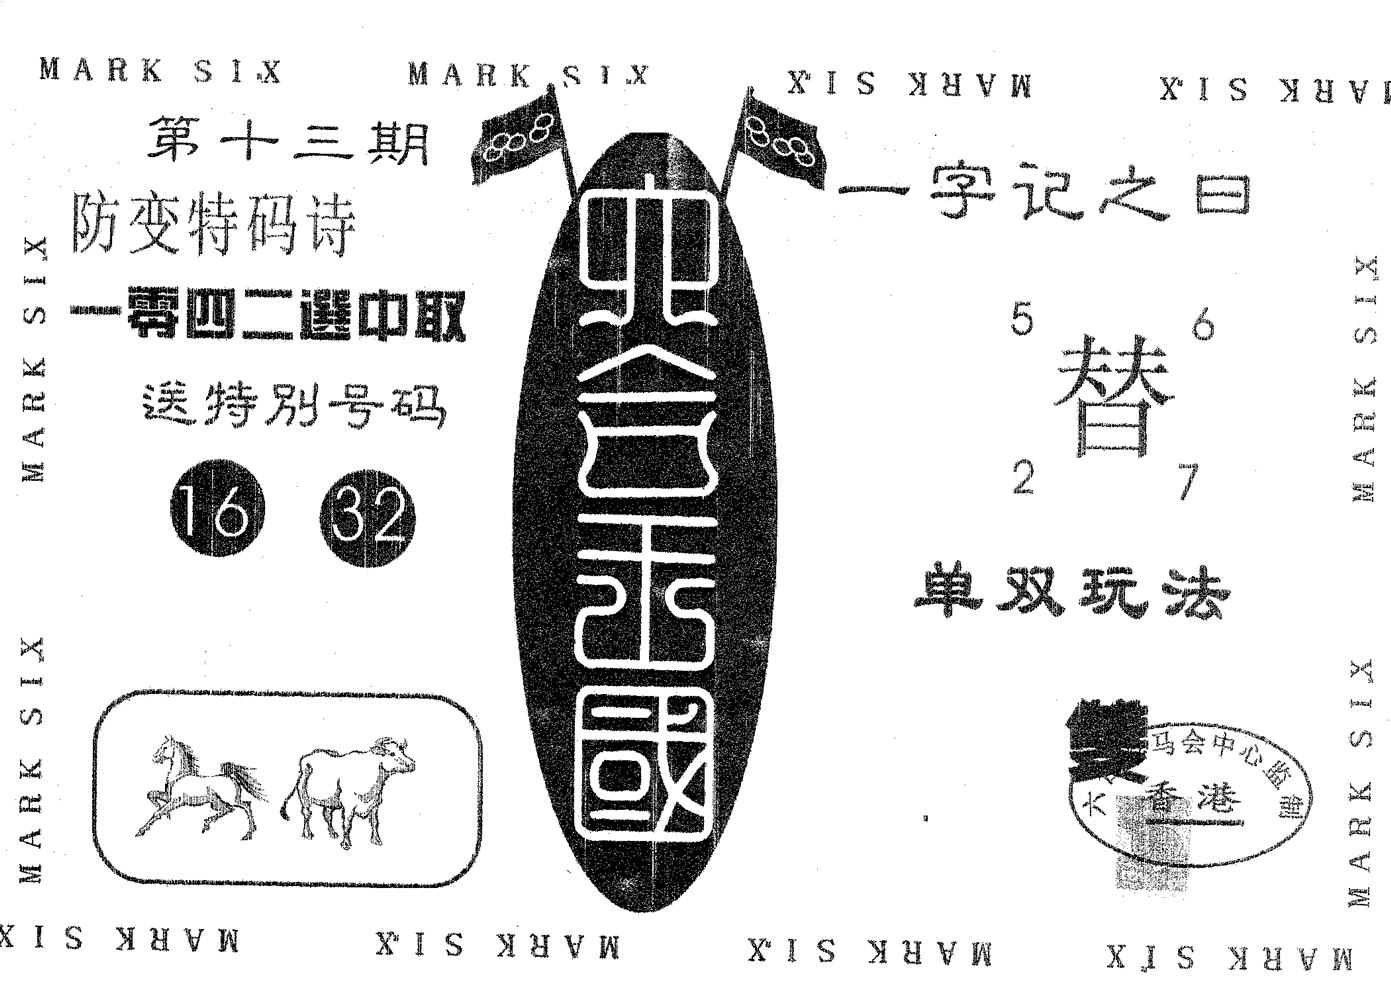 MARK SIX MARK SIX MARK SIX MARK SIX
第十三期
防变特码诗
一零四二選中取
送特別号码
16 32
六合王國
一字记之曰
5 6
替
2 7
单双玩法
雙
六合马会中心监制
香港
MARK SIX
MARK SIX
MARK SIX
MARK SIX
MARK SIX MARK SIX MARK SIX MARK SIX